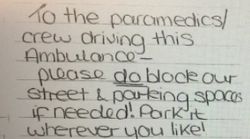 To the paramedics/
crew driving this
Ambulance -
please do block our
street & parking spaces
if needed! Park it
wherever you like!